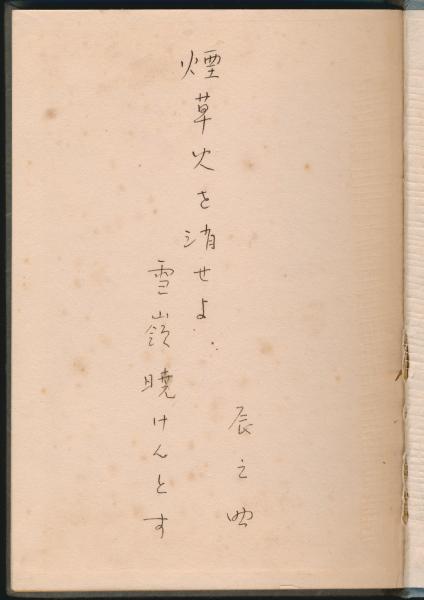 煙草火を消せよ
雪嶺曉けんとす
辰之助